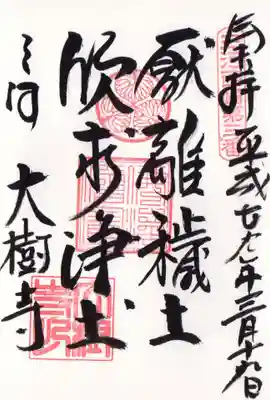 奉拝 平成廿七年三月十九日
厭離穢土
欣求浄土
三河 大樹寺